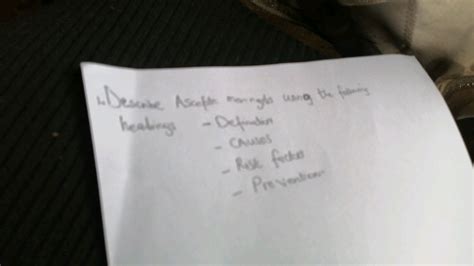 1. Describe Aseptic meningitis using the following
headings - Definition
- CAUSES
- Risk factors
- Prevention